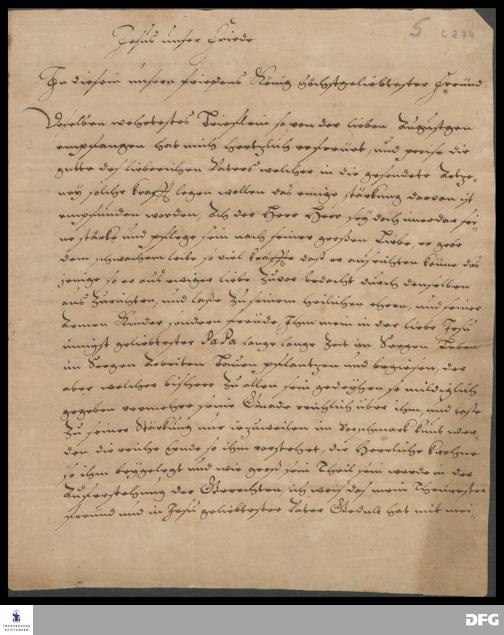 5 C 274
Jesus unser Friede
In diesem unsern Friedens König höchstgeliebtester Freünd
Deselben wehrtestes Briefflein so von der lieben Augustgen
empfangen hat mich hertzlich erfreüet, und preise die
gütte des liebreichen Vaters welcher in die gesendete Artze-
ney solche krafft legen wollen das einige stärkung darvon ist
empfunden worden, Ach der Herr Herr sey doch imerdar sei-
ne stärke und pflege sein nach seiner großen Liebe, er gebe
dem schwachem leibe so viel kräffte daß er ausrichten könne das
jenige so er aus ewiger liebe zuvor bedacht durch denselben
aus zurichten, und laße zu seinem heilichen ehren, und seiner
Armen Kinder sondern freüde, Ihm mein in der liebe Jesu
innigst geliebtester PaPa lange lange Zeit im Seegen Leben
im Seegen Arbeiten Bauen pflantzen und begiesen, der
aber welcher bishero zu allen sein gedeyhen so mildiglich
gegeben vermehre seine Gnade reichlich über ihm, und laße
zu seiner Stärkung nur je zuweilen im Vorschmack kunt wer-
den, die reiche Ernde so ihm vorstehet, die Herrliche krohne
so ihm beygelegt und wie groß sein Theil sein werde in der
Auferstehung der Gerechten, ich weiß das mein Theürester
Freünd und in Jesu geliebtester Vater Gedult hat mit mei-
FRANCKESCHE STIFTUNGEN
DFG